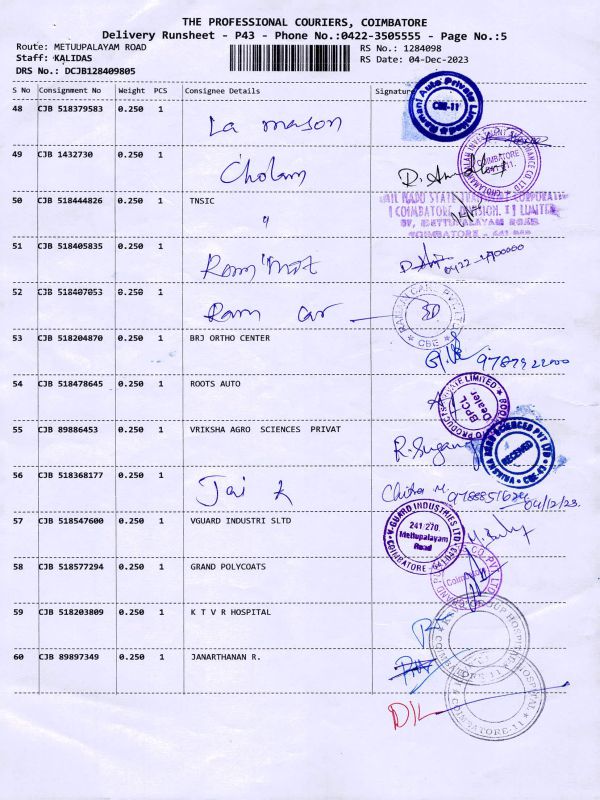 THE PROFESSIONAL COURIERS, COIMBATORE
Delivery Runsheet - P43 - Phone No.:0422-3505555 - Page No.:5
Route: METUUPALAYAM ROAD
RS No.: 1284098
Staff: KALIDAS
RS Date: 04-Dec-2023
DRS No.: DCJB128409805
S No Consignment No Weight PCS Consignee Details Signature
48 CJB 518379583 0.250 1 La mason
Ramani Auto Private Limited
CBE-11
49 CJB 1432730 0.250 1 Cholam
COIMBATORE
50 CJB 518444826 0.250 1 TNSIC
"
COIMBATORE - 641
51 CJB 518405835 0.250 1
52 CJB 518407053 0.250 1 Ram car
CBE
53 CJB 518204870 0.250 1 BRJ ORTHO CENTER
54 CJB 518478645 0.250 1 ROOTS AUTO
BPCL
Dealer
55 CJB 89886453 0.250 1 VRIKSHA AGRO SCIENCES PRIVAT
RECEIVED
CBE-43
56 CJB 518368177 0.250 1 Jai
Chitra M.
04/12/23.
57 CJB 518547600 0.250 1 VGUARD INDUSTRI SLTD
V-GUARD INDUSTRIES LTD
241/270,
Mettupalayam
Road
COIMBATORE - 641043
58 CJB 518577294 0.250 1 GRAND POLYCOATS
Coimbatore
59 CJB 518203809 0.250 1 K T V R HOSPITAL
60 CJB 89897349 0.250 1 JANARTHANAN R.
COIMBATORE-11